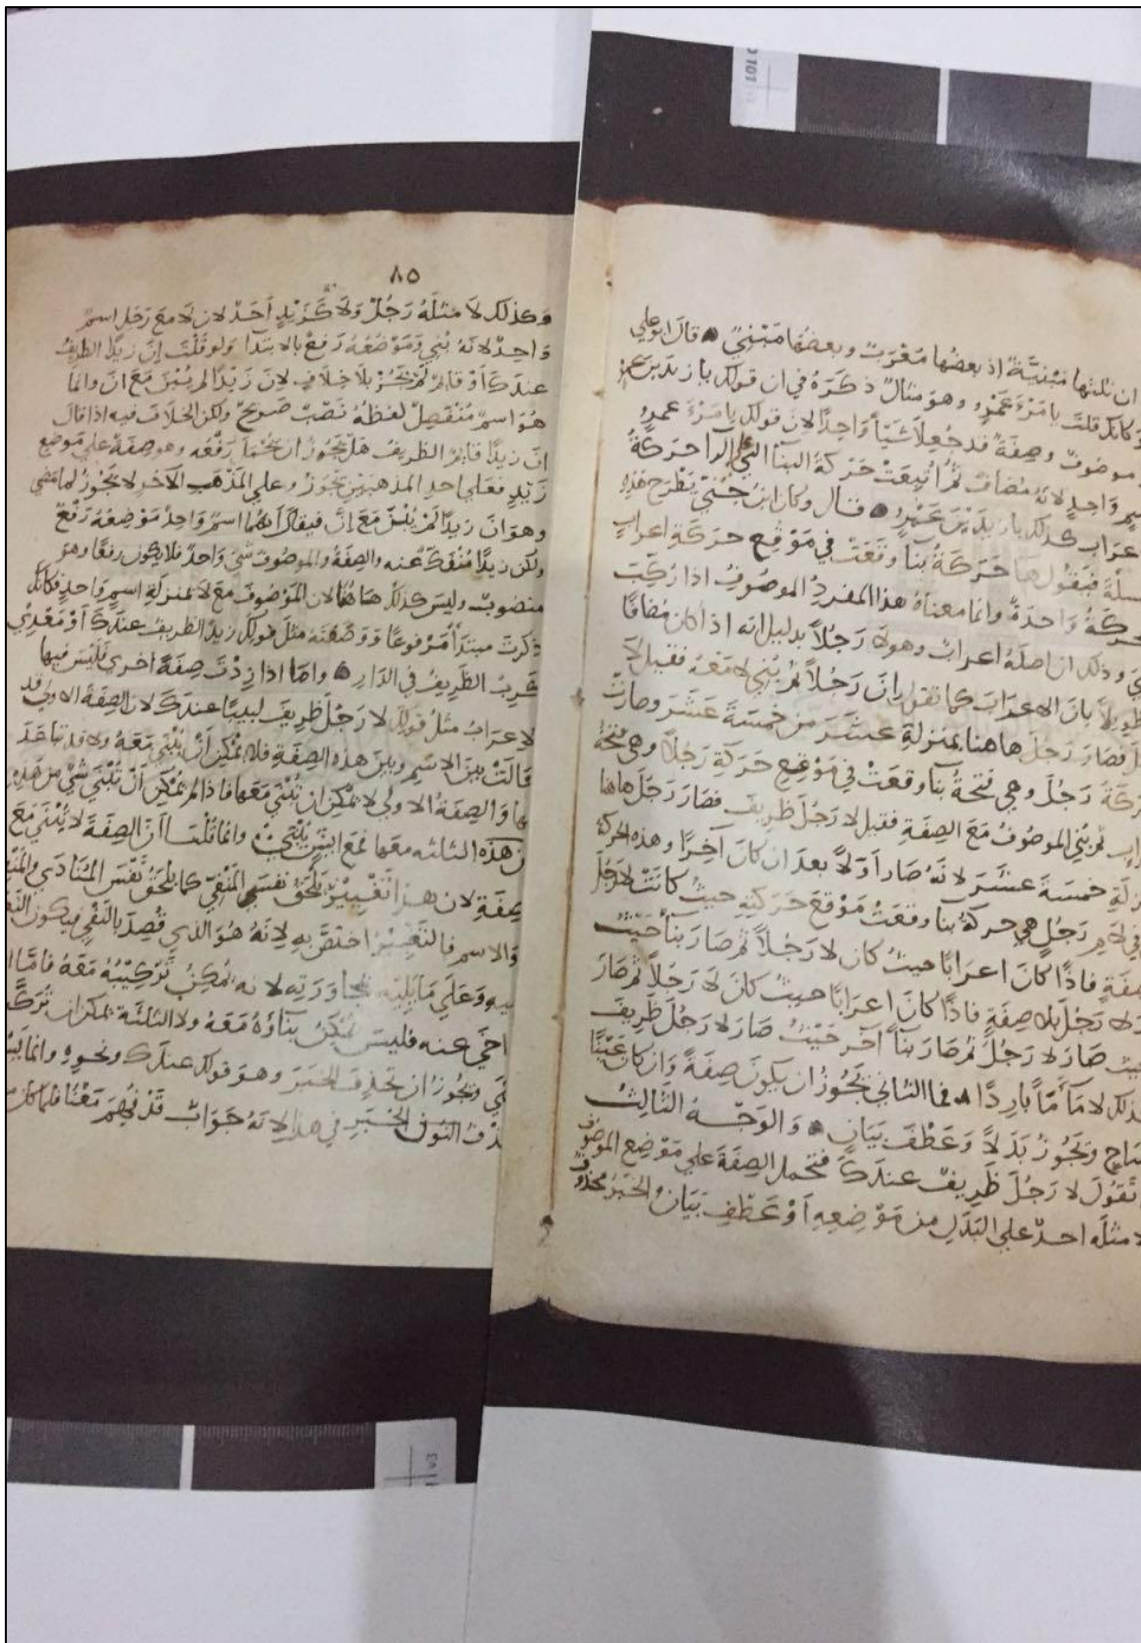 ان ثلثتها مبنيَّةٌ اذ بعضُها مُعْرَبٌ وبعضُها مَبْنيٌّ قالَ ابو علي
كانك قلتَ يا مَرْءَ عَمْرٍو وهو مثالٌ ذكَرَهُ في ان قولك يا زيدَ بنَ عمرو
موصوفٌ وصِفَةٌ قد جُعِلا شيئًا وَاحِدًا لان قولك يا مَرْءَ عمرو
اسم وَاحِدٍ لانهُ مُضافٌ ثُمَّ أُتبِعَتْ حَرَكَةُ البنا التي الرا حركةُ
اعرَاب كذلك يا زيدَ بْنَ عَمْرٍو قال وكان ابن جُنّي يَطْرح هذه
فيَقولُ حَرَكَةُ بناء وَقَعَتْ في مَوْقِع حَرَكَةِ اعراب
حركةٌ وَاحدَةٌ وانما معناهُ هذا المفردُ الموصُوفُ اذا رُكِّبَ
وذلك ان اصلَهُ اعرابٌ وهو لا رَجُلاً بدليل انه اذا كان مُضافًا
طويلاً بان الاعرَابَ كما تقول ان رَجُلاً ثم بُني لا مَعَهُ فقيل لا
فصَارَ رَجُلَ هاهنا بمنزلةِ عشَرَ من خمسَةَ عشَرَ وصارتْ
حركةُ رَجُلَ وهي فَتحةُ بناء وقعَتْ في مَوْقِع حَرَكةِ رَجُلاً وهي فتحةُ
اعراب ثم بُني الموصُوفُ مَعَ الصِفَةِ فقيل لا رَجُلَ ظريفَ فصَارَ رَجُلَ هاهنا
بمنزلةِ خمسَةَ عشَرَ لانهُ صَارَ أوّلاً بعدَ ان كانَ آخِرًا وهذه الحركةُ
في لام رَجُلَ هي حركةُ بناء وقعَتْ مَوْقِعَ حَرَكَتِهِ حيثُ كانَتْ لا رَجُلَ
صفةٍ فاذًا كانَ اعرَابًا حيثُ كان لا رَجُلاً ثم صَارَ بناءً حيثُ
لا رَجُلَ بلا صِفَةٍ فاذًا كانَ اعرَابًا حيثُ كان لا رَجُلاً ثم صَارَ
حيث صَارَ لا رَجُلَ ثم صَارَ بناءً آخرَ حَيْثُ صَارَ لا رَجُلَ ظَرِيفَ
كذلك لا مَاءَ مَاءً بارِدًا فماء الثاني يَجُوزُ ان يكونَ صِفَةً وَان كان عَيْنًا
ويَجُوزُ بَدَلاً وَعَطْفَ بَيَانٍ وَالوَجْهُ الثَّالِثُ
تقُولَ لا رَجُلَ ظَرِيفٌ عندَكَ فتحمل الصِفَةَ علي مَوْضِع الموصُوفِ
لا مثلَه احدٌ علي البَدَلِ من مَوْضِعِهِ أوْ عَطْفِ بَيَانٍ والخبَرُ محذوف
٨٥
وكذلك لا مثلَهُ رَجُلٌ وَلا كَزَيْدٍ أحَدٌ لان لا معَ رَجل اسمٌ
وَاحِدٌ لانهُ بُني وَمَوْضعُهُ رَفعٌ بالابتدَا ولو قُلْتَ إنَّ زيدًا الظريفُ
عندَكَ أوْ قائمٌ لم يَجُزْ بلا خِلافٍ لانَ زَيْدًا لم يُبْنَ مَعَ انَّ وانما
هُوَ اسمٌ مُنفصِلٌ لفظهُ نَصْبٌ صَرِيحٌ ولكن الخلافَ فيه اذا قالَ
انَّ زيدًا قايمٌ الظريفُ هل يجُوزُ ان يُحْمَلَ رَفْعُه وهو صِفَةٌ علي مَوضِع
زَيْدٍ فعَلي احدِ المذهبَين يجوز وعلي المذْهَب الآخَر لا يَجُوزُ لما مَضي
وهوَ انَ زَيدًا لم يُبْنَ مَعَ انَّ فيقال انهما اسمٌ وَاحدٌ مَوْضِعُهُ رَفْعٌ
ولكن زيدًا مُنْفَكٌّ عنه والصِفَةُ والموصُوفُ شيءٌ وَاحدٌ فلا يكون رفعًا وهو
منصوبٌ وليسَ كذلكَ هاهُنا لان المَوْصُوفَ مَعَ لا بمنزلةِ اسمٍ وَاحدٍ فكانك
ذكرتَ مبتدَأً مَرْفوعًا وَوَصَفتَه مثلَ قولك زيدٌ الظريفُ عندَكَ أوْ
الظَرِيفُ في الدَار وامَّا اذا زِدْتَ صِفَةً اخرَي فليْسَ فيها
الا الاعرَابُ مثلُ قولك لا رَجُلَ ظَريفَ لبيبًا عندَكَ لان الصِفَةَ الاولي قد
حَالَتْ بينَ الاسْمِ وبينَ هذه الصِفَةِ فلا يُمْكِنُ أنْ تُبْني مَعَهُ ولا قد تباعَدَ
وَالصِفَةُ الاولي لا يُمْكِنُ ان تُبْني مَعَها فاذا لم يُمْكِن أنْ تُبْنَي شيْءٌ من هَذِهِ
هذه الثالثه معَها وانما قلتُ انَّ الصِفَةَ لا تُبْنَي مَعَ
صِفَة لان هذا تَغْييرٌ يَلحَقُ نفسَ المنْفيّ كما يلحَقُ نَفْسَ المُنادَي
وَالاسم فالتَغْييرُ اختصَّ بِهِ لانهُ هُوَ الذي قُصِدَ بالنَفْي فيكون
وَعَلَي مَا يَلِيهِ لمجاوَرَتِه لانه يُمْكِنُ تَرْكِيبُهُ مَعَهُ فامَّا
عنه فليسَ يُمْكِنُ بناؤهُ مَعَهُ ولا الثلثة يمكن ان تُركَّب
ويجُوزُ ان تحذِفَ الخبَرَ وهوَ قولك عندَك ونحوِه وانما
الخبَرِ في هذا لانهُ جَوَابٌ قَدْ فُهِمَ مَعْنَاهُ فلما كان